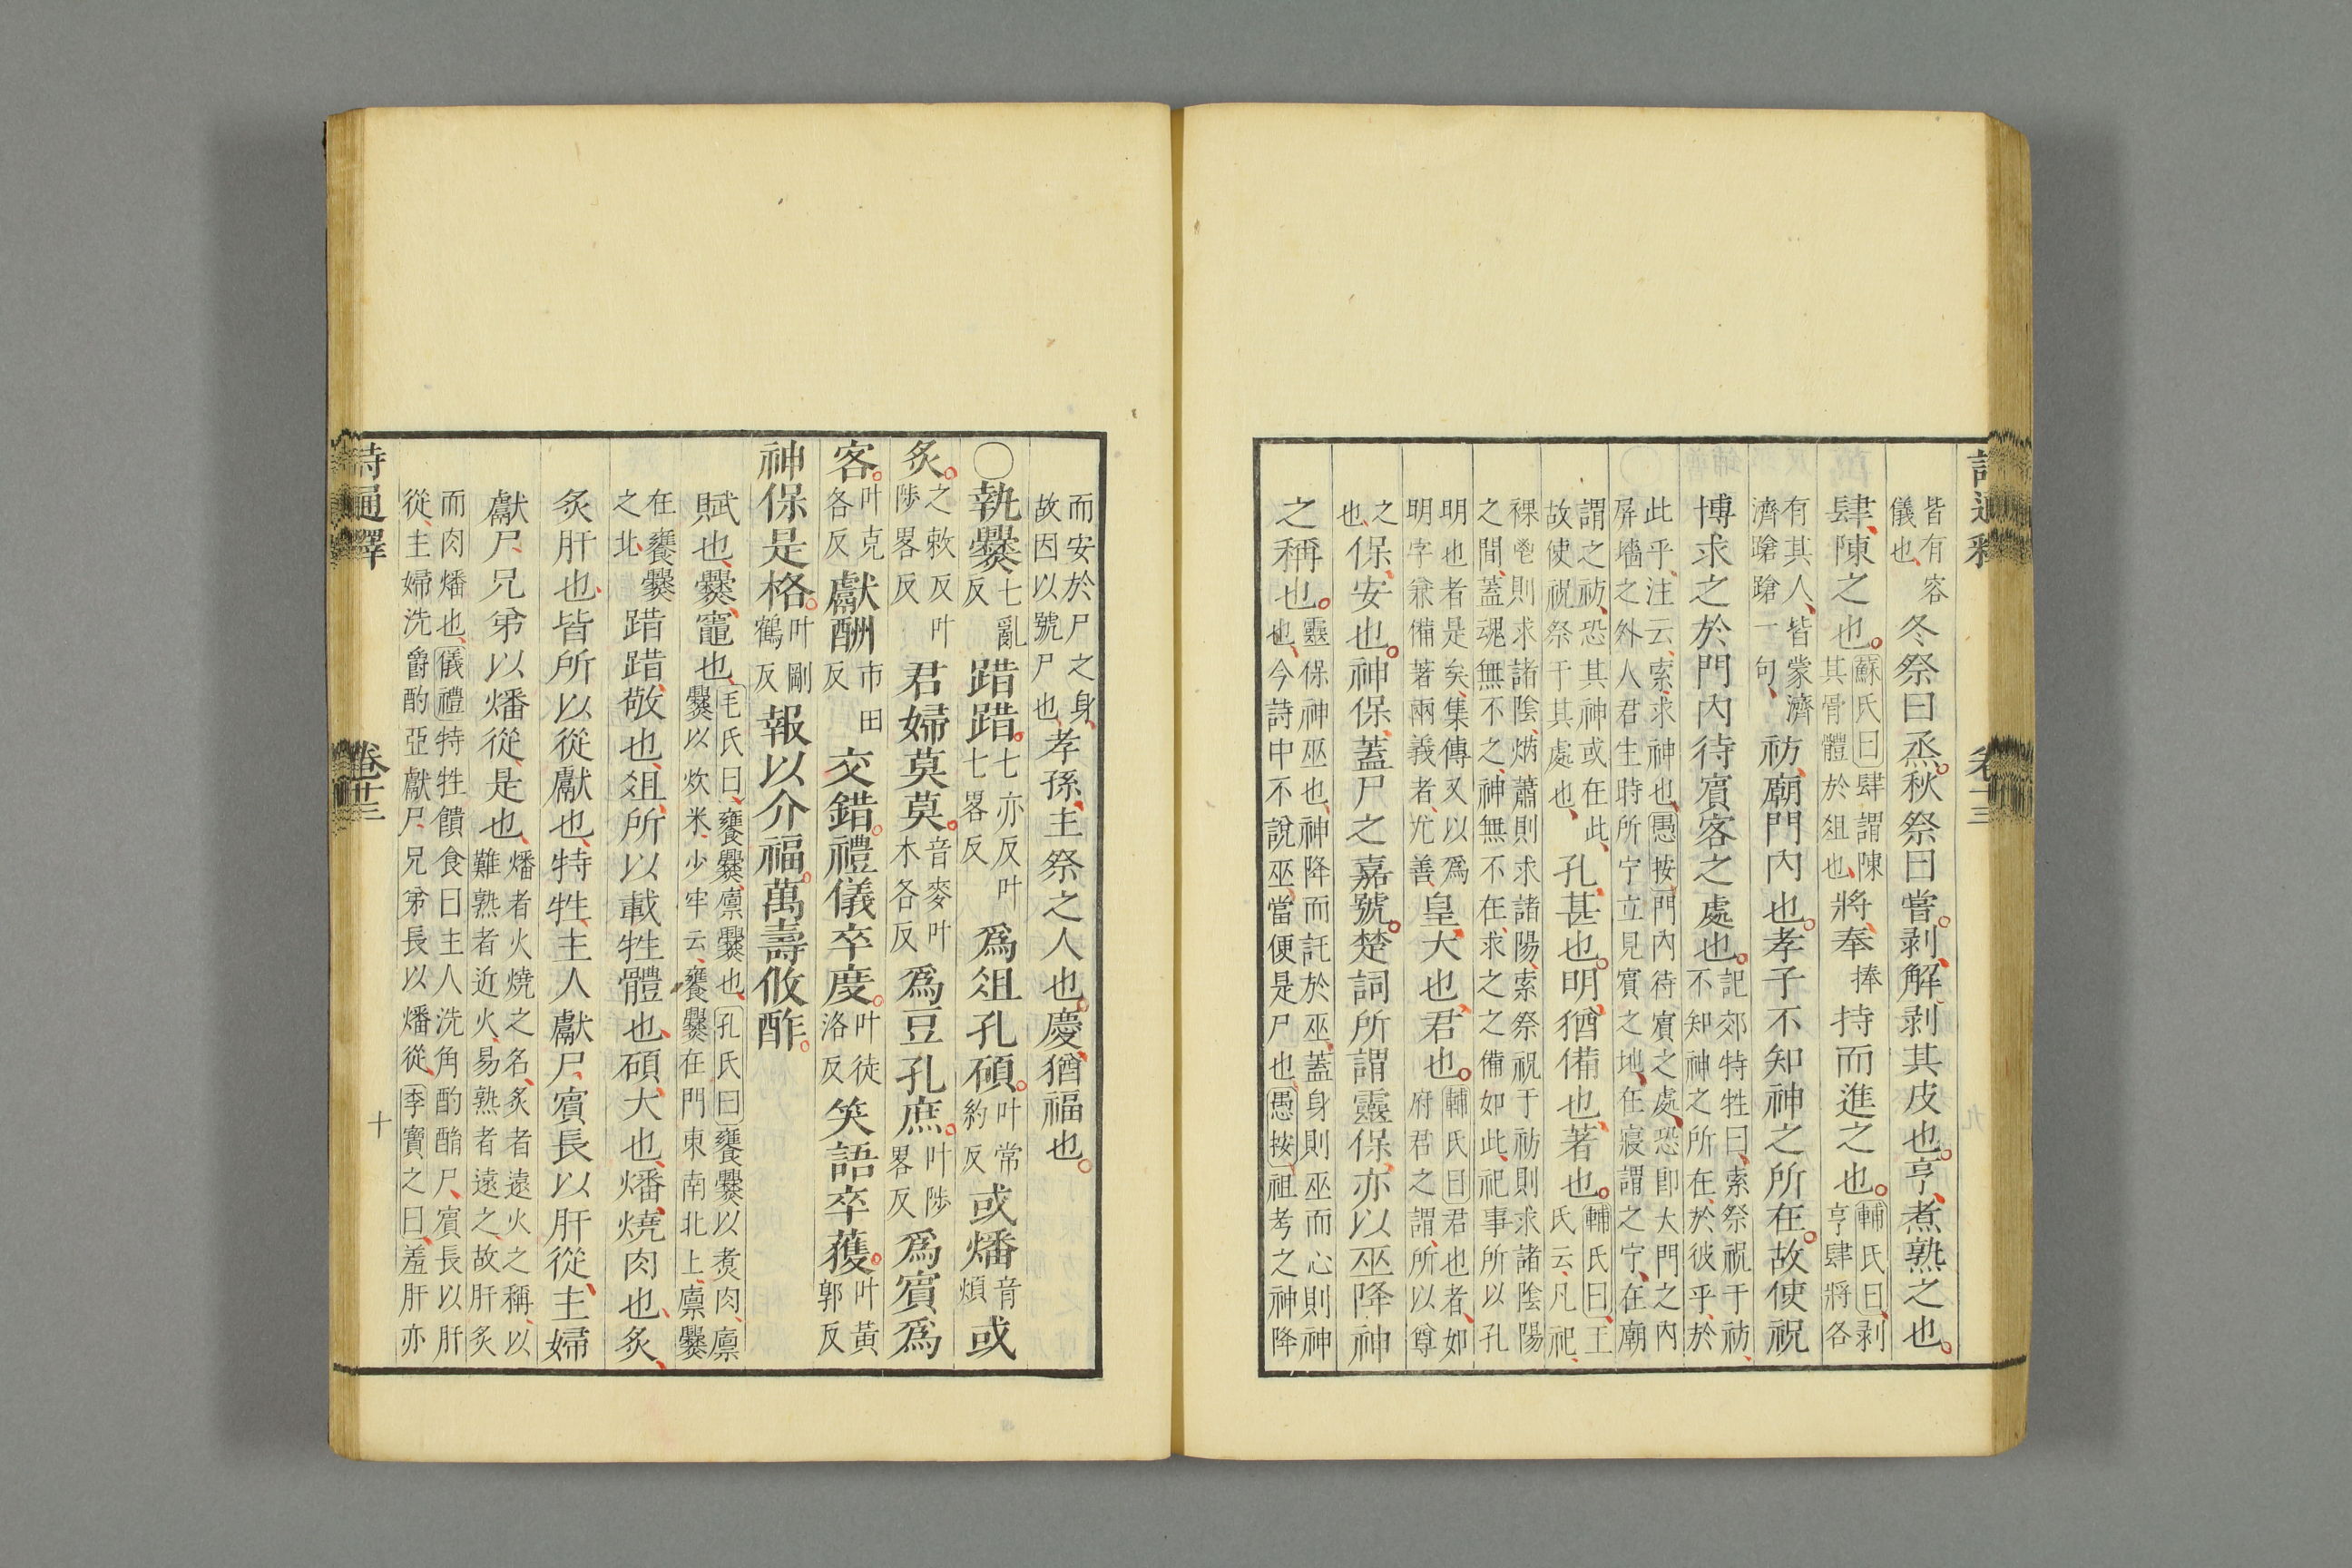 皆有容儀也冬祭曰烝秋祭曰嘗剥解剥其皮也亨煮熟之也
肆陳之也蘇氏曰肆謂陳其骨體於俎也將奉捧持而進之也輔氏曰剥亨肆將各
有其人皆蒙濟濟蹌蹌一句祊廟門內也孝子不知神之所在故使祝
博求之於門內待賓客之處也記郊特牲曰索祭祝于祊不知神之所在於彼乎於
此乎注云索求神也愚按門內待賓之處恐卽大門之內屏墻之外人君生時所宁立見賓之地在寢謂之宁在廟
謂之祊恐其神或在此故使祝祭于其處也孔甚也明猶備也著也輔氏曰王氏云凡祀
祼鬯則求諸陰焫蕭則求諸陽索祭祝于祊則求諸陰陽之間蓋魂無不之神無不在求之之備如此祀事所以孔
明也者是矣集傳又以爲明字兼備著兩義者尤善皇大也君也輔氏曰君也者如府君之謂所以尊
之也保安也神保蓋尸之嘉號楚詞所謂靈保亦以巫降神
之稱也靈保神巫也神降而託於巫蓋身則巫而心則神也今詩中不說巫當便是尸也愚按祖考之神降
而安於尸之身故因以號尸也孝孫主祭之人也慶猶福也
○執爨七亂反踖踖七亦反叶七畧反爲俎孔碩叶常約反或燔音煩或
炙之敕反叶陟畧反君婦莫莫音麥叶木各反爲豆孔庶叶陟畧反爲賓爲
客叶克各反獻酬市田反交錯禮儀卒度叶徒洛反笑語卒獲叶黃郭反
神保是格叶剛鶴反報以介福萬壽攸酢
賦也爨竈也毛氏曰饔爨廪爨也孔氏曰饔爨以煑肉廪爨以炊米少牢云饔爨在門東南北上廪爨
在饔爨之北踖踖敬也俎所以載牲體也碩大也燔燒肉也炙
炙肝也皆所以從獻也特牲主人獻尸賓長以肝從主婦
獻尸兄弟以燔從是也燔者火燒之名炙者遠火之稱以難熟者近火易熟者遠之故肝炙
而肉燔也儀禮特牲饋食曰主人洗角酌酳尸賓長以肝從主婦洗爵酌亞獻尸兄弟長以燔從李寶之曰羞肝亦
詩通釋 卷十三 十